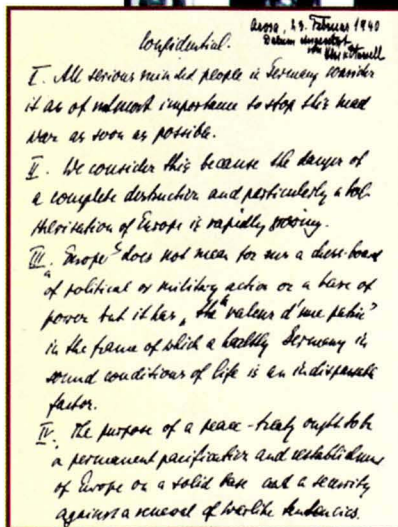 Arosa, 23. Februar 1940
Datum eingesetzt
von
Confidential.
I. All serious minded people in Germany consider
it as of utmost importance to stop this mad
war as soon as possible.
II. We consider this because the danger of
a complete destruction and particularly a bol-
shevisation of Europe is rapidly growing.
III. "Europe" does not mean for us a chess-board
of political or military action or a base of
power but it has "the valeur d'une patrie"
in the frame of which a healthy Germany in
sound conditions of life is an indispensable
factor.
IV. The purpose of a peace-treaty ought to be
a permanent pacification and reestablishment
of Europe on a solid base and a security
against a renewal of warlike tendencies.